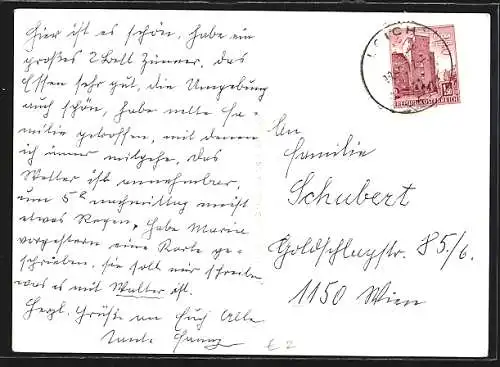 Hier ist es schön, habe ein
großes 2 Bett Zimmer, das
Essen sehr gut, die Umgebung
auch schön, habe nette Fa-
milie getroffen, mit denen
ich immer mitgehe, das
Wetter ist annehmbar,
um 5h nachmittag meist
etwas Regen, habe Maria
vorgestern eine Karte ge-
schrieben, sie soll mir schreiben
was es mit Walter ist.
Herzl. Grüße an Euch Alle
Tante
LOICH
REPUBLIK ÖSTERREICH
An
Familie
Schubert
Goldschlagstr. 85/6.
1150 Wien
€ 2